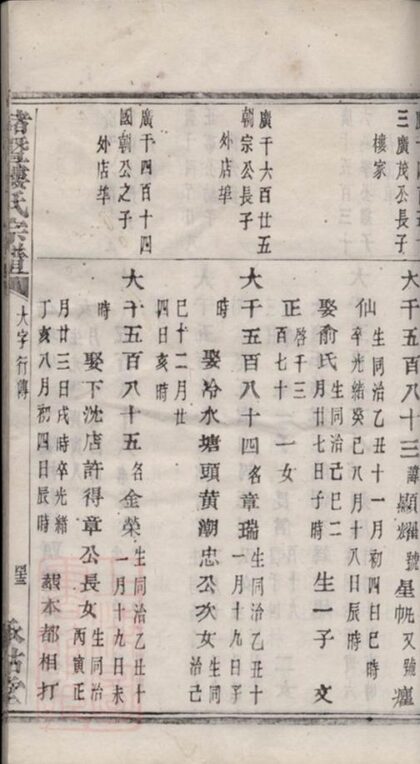 三廣茂公長子
樓家
大千五百八十三諱顯耀號星帆又號癯
仙生同治乙丑十一月初四日巳時
卒光緒癸巳八月十八日辰時
娶俞氏生同治己巳二
月廿七日子時生一子 文
正啓千三
百七十 一女
廣千六百廿五
朝宗公長子
外店埠
大千五百八十四名章瑞生同治乙丑十
一月十九日子
時 娶冷水塘頭黃潮忠公次女生同
治己
巳十二月廿
四日亥時
廣千四百十四
國朝公之子
外店埠
大千五百八十五名金榮生同治乙丑十
一月十九日未
時 娶下沈店許得章公長女生同治
丙寅正
月廿三日戌時卒光緒
丁亥八月初四日辰時 續本都相打
諸暨樓氏宗譜
大字行傳